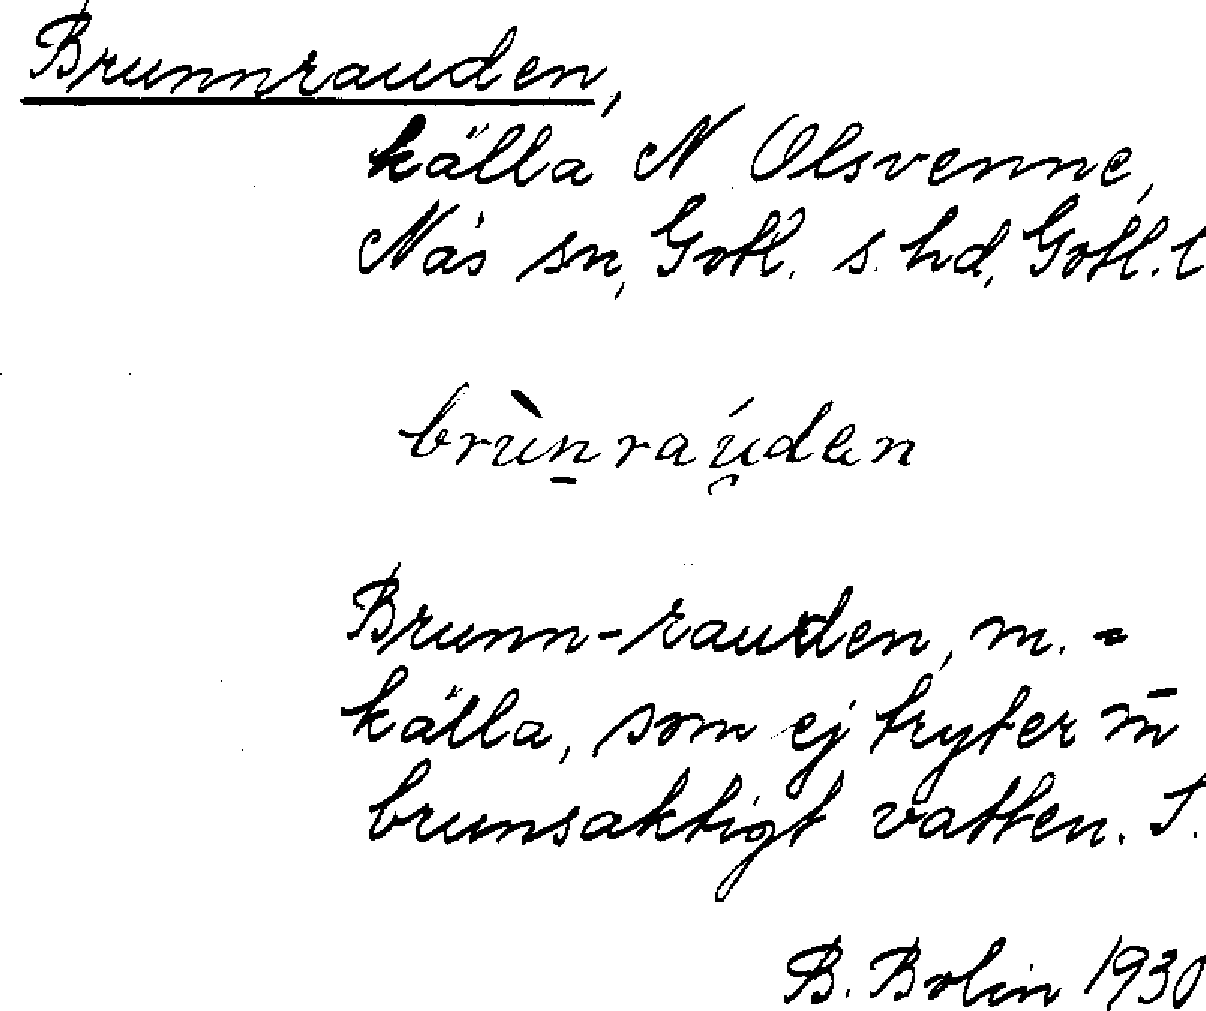 Brunnrauden,
källa N Olsvenne,
Näs sn, Gotl. s. hd, Gotl. l
brùn̠raúdɐn
Brunn-rauden, m. =
källa, som ej tryter m̄
brunsaktigt vatten. S.
B. Bolin 1930